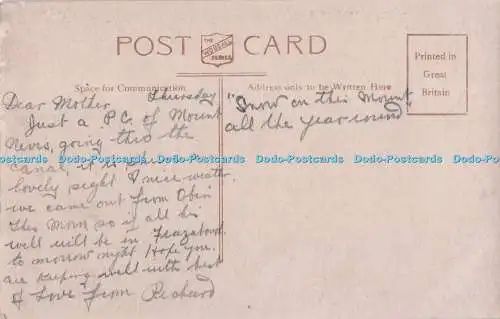 POST CARD
THE
WRENCH
SERIES
Printed in
Great
Britain
Space for Communication
Address only to be Written Here
Dear Mother Thursday
Just a P.C. of Mount
Nevis, going thro the
canal, it is
lovely sight & nice weath
we came out from Obin
This Morn so if all his
well will be in
to morrow night Hope you
are keeping well with best
& Love from Richard
"Snow on this Mount
all the year round
Dado-Postcards Dado-Postcards Dado-Postcards Dado-Postcards Dado-Postcards Dado-Postcards